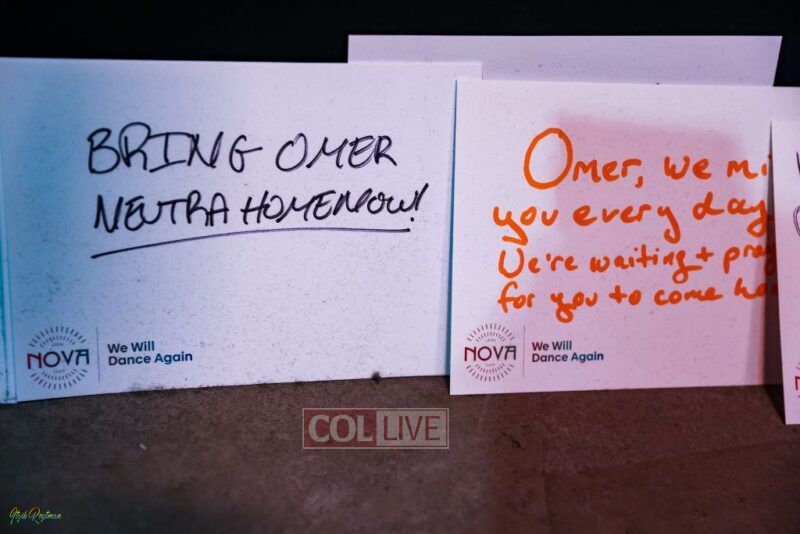 BRING OMER
NEUTRA HOME NOW!
NOVA
We Will
Dance Again
Omer, we
you every day
We're waiting +
for you to come
NOVA
We Will
Dance Again
COL LIVE